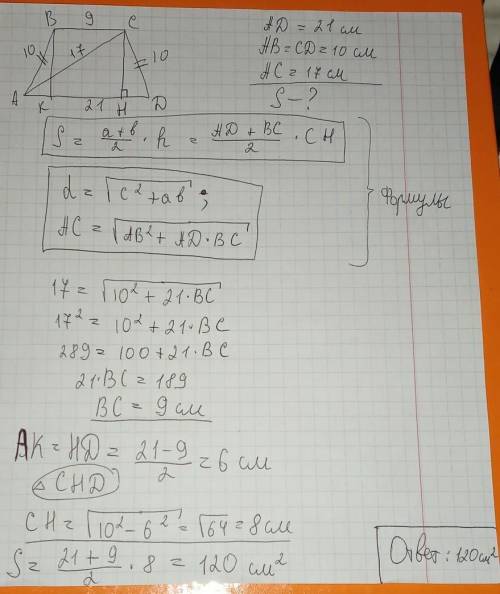 B 9 C
10 17 10
A K 21 H D
AD = 21 см
AB = CD = 10 см
AC = 17 см
S - ?
S = \frac{a+b}{2} · h = \frac{AD + BC}{2} · CH
d = √(c² + ab) ;
AC = √(AB² + AD · BC)
Формулы
17 = √(10² + 21·BC)
17² = 10² + 21·BC
289 = 100 + 21·BC
21·BC = 189
BC = 9 см
AK = HD = \frac{21-9}{2} = 6 см
△ CHD
CH = √(10² - 6²) = √64 = 8 см
S = \frac{21+9}{2} · 8 = 120 см²
Ответ: 120 см²